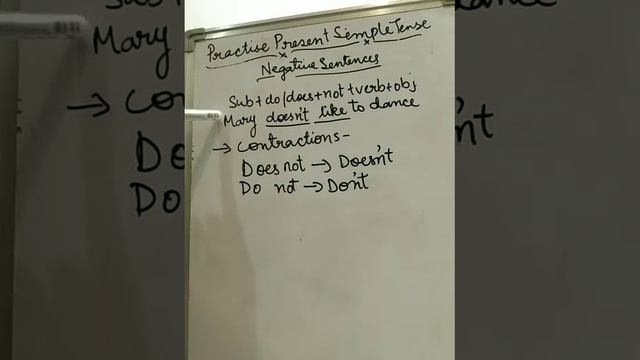 Practise Present Simple Tense
Negative Sentences
Sub + do/does + not + verb + obj
Mary doesn't like to dance
→ Contractions -
Does not → Doesn't
Do not → Don't